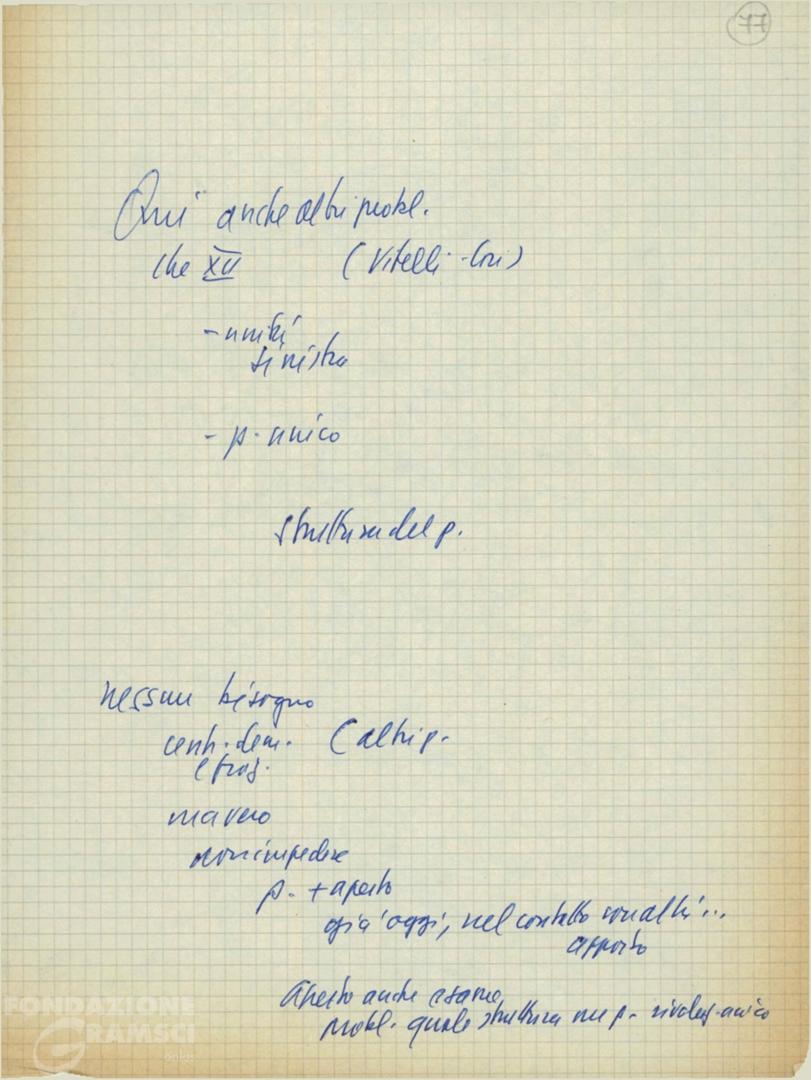 77
Qui anche altri probl.
che XII (Vitelli -
- unità
sinistra
- p. unico
struttura del p.
nessun bisogno
centr. dem. (altri p.
e fraz.
ma vero
non impedire
p. + aperto
già oggi, nel contatto con altri...
apporto
aperto anche esame
probl. quale struttura un p. rivoluz. unico
FONDAZIONE
GRAMSCI